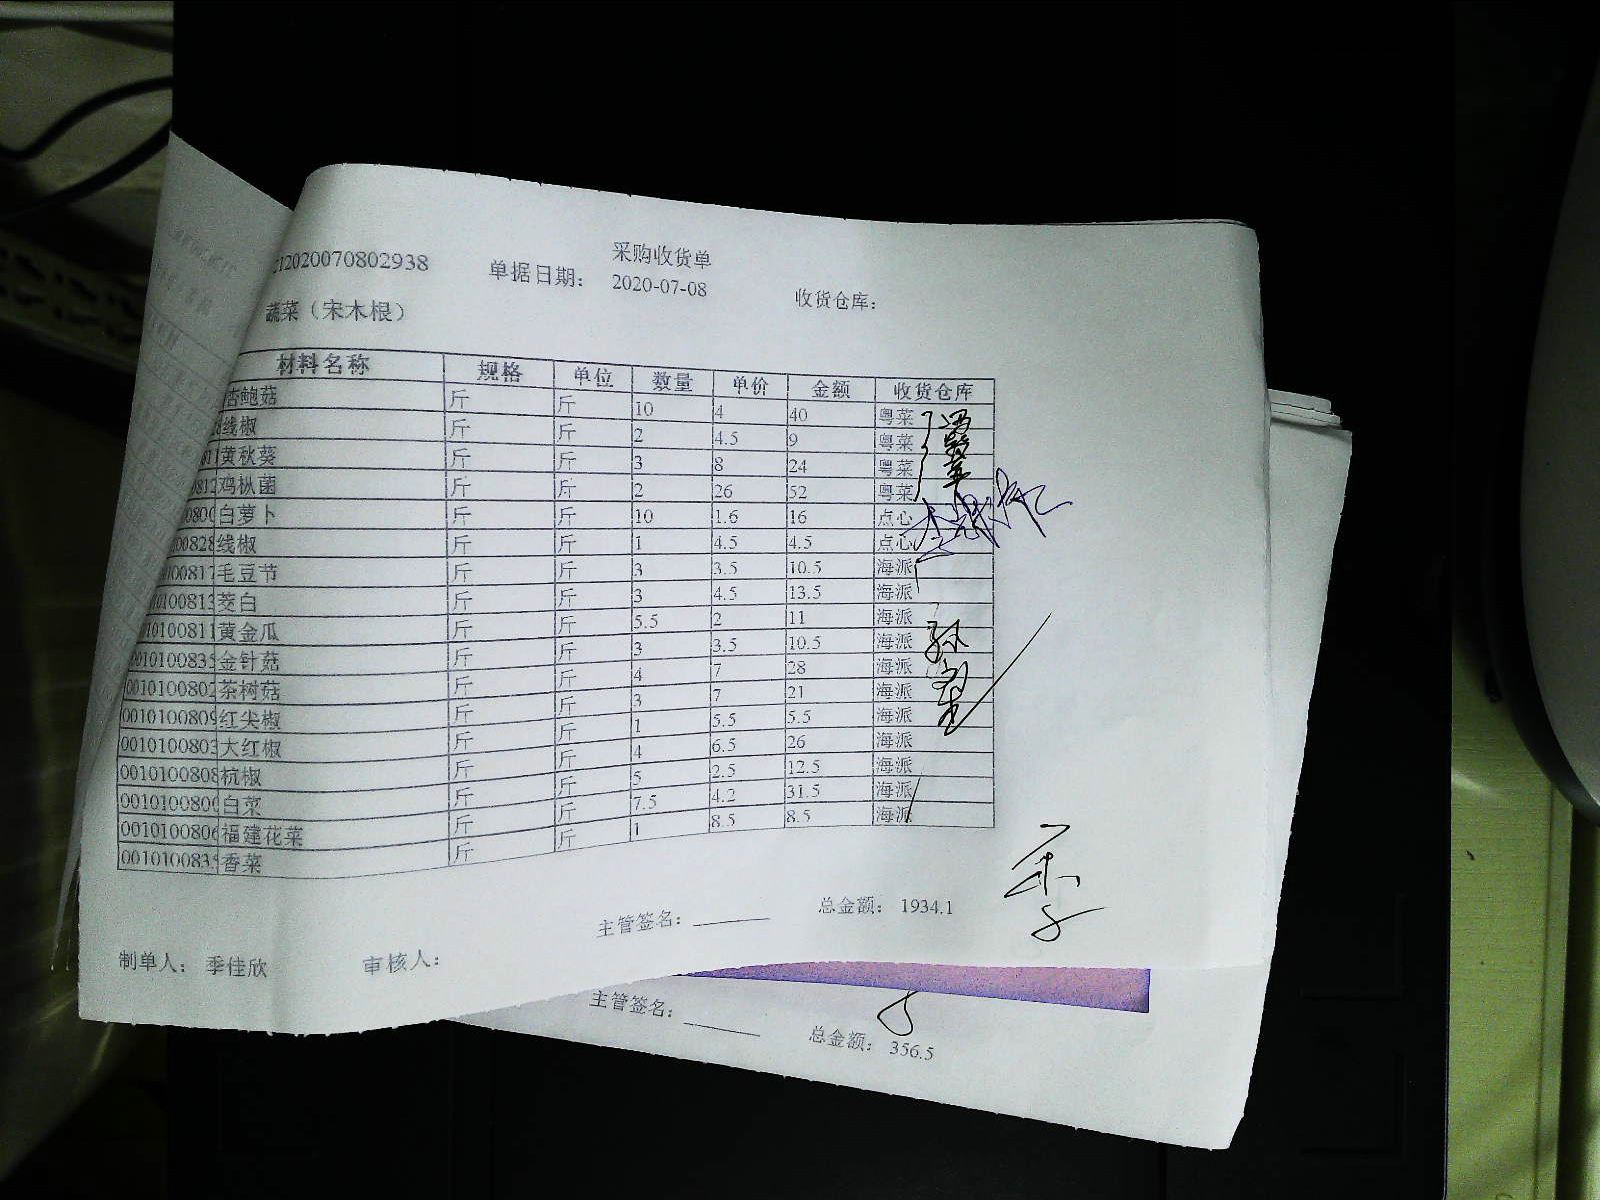 采购收货单
12020070802938 单据日期： 2020-07-08 收货仓库：
蔬菜（宋木根）
材料名称 规格 单位 数量 单价 金额 收货仓库
杏鲍菇 斤 斤 10 4 40 粤菜
线椒 斤 斤 2 4.5 9 粤菜
黄秋葵 斤 斤 3 8 24 粤菜
鸡枞菌 斤 斤 2 26 52 粤菜
白萝卜 斤 斤 10 1.6 16 点心
00828 线椒 斤 斤 1 4.5 4.5 点心
100817 毛豆节 斤 斤 3 3.5 10.5 海派
0100813 茭白 斤 斤 3 4.5 13.5 海派
10100811 黄金瓜 斤 斤 5.5 2 11 海派
0010100835 金针菇 斤 斤 3 3.5 10.5 海派
0010100802 茶树菇 斤 斤 4 7 28 海派
0010100809 红尖椒 斤 斤 3 7 21 海派
0010100803 大红椒 斤 斤 1 5.5 5.5 海派
0010100808 杭椒 斤 斤 4 6.5 26 海派
0010100800 白菜 斤 斤 5 2.5 12.5 海派
0010100806 福建花菜 斤 斤 7.5 4.2 31.5 海派
001010083 香菜 斤 斤 1 8.5 8.5 海派
主管签名： 总金额： 1934.1
制单人： 季佳欣 审核人：
主管签名： 总金额： 356.5